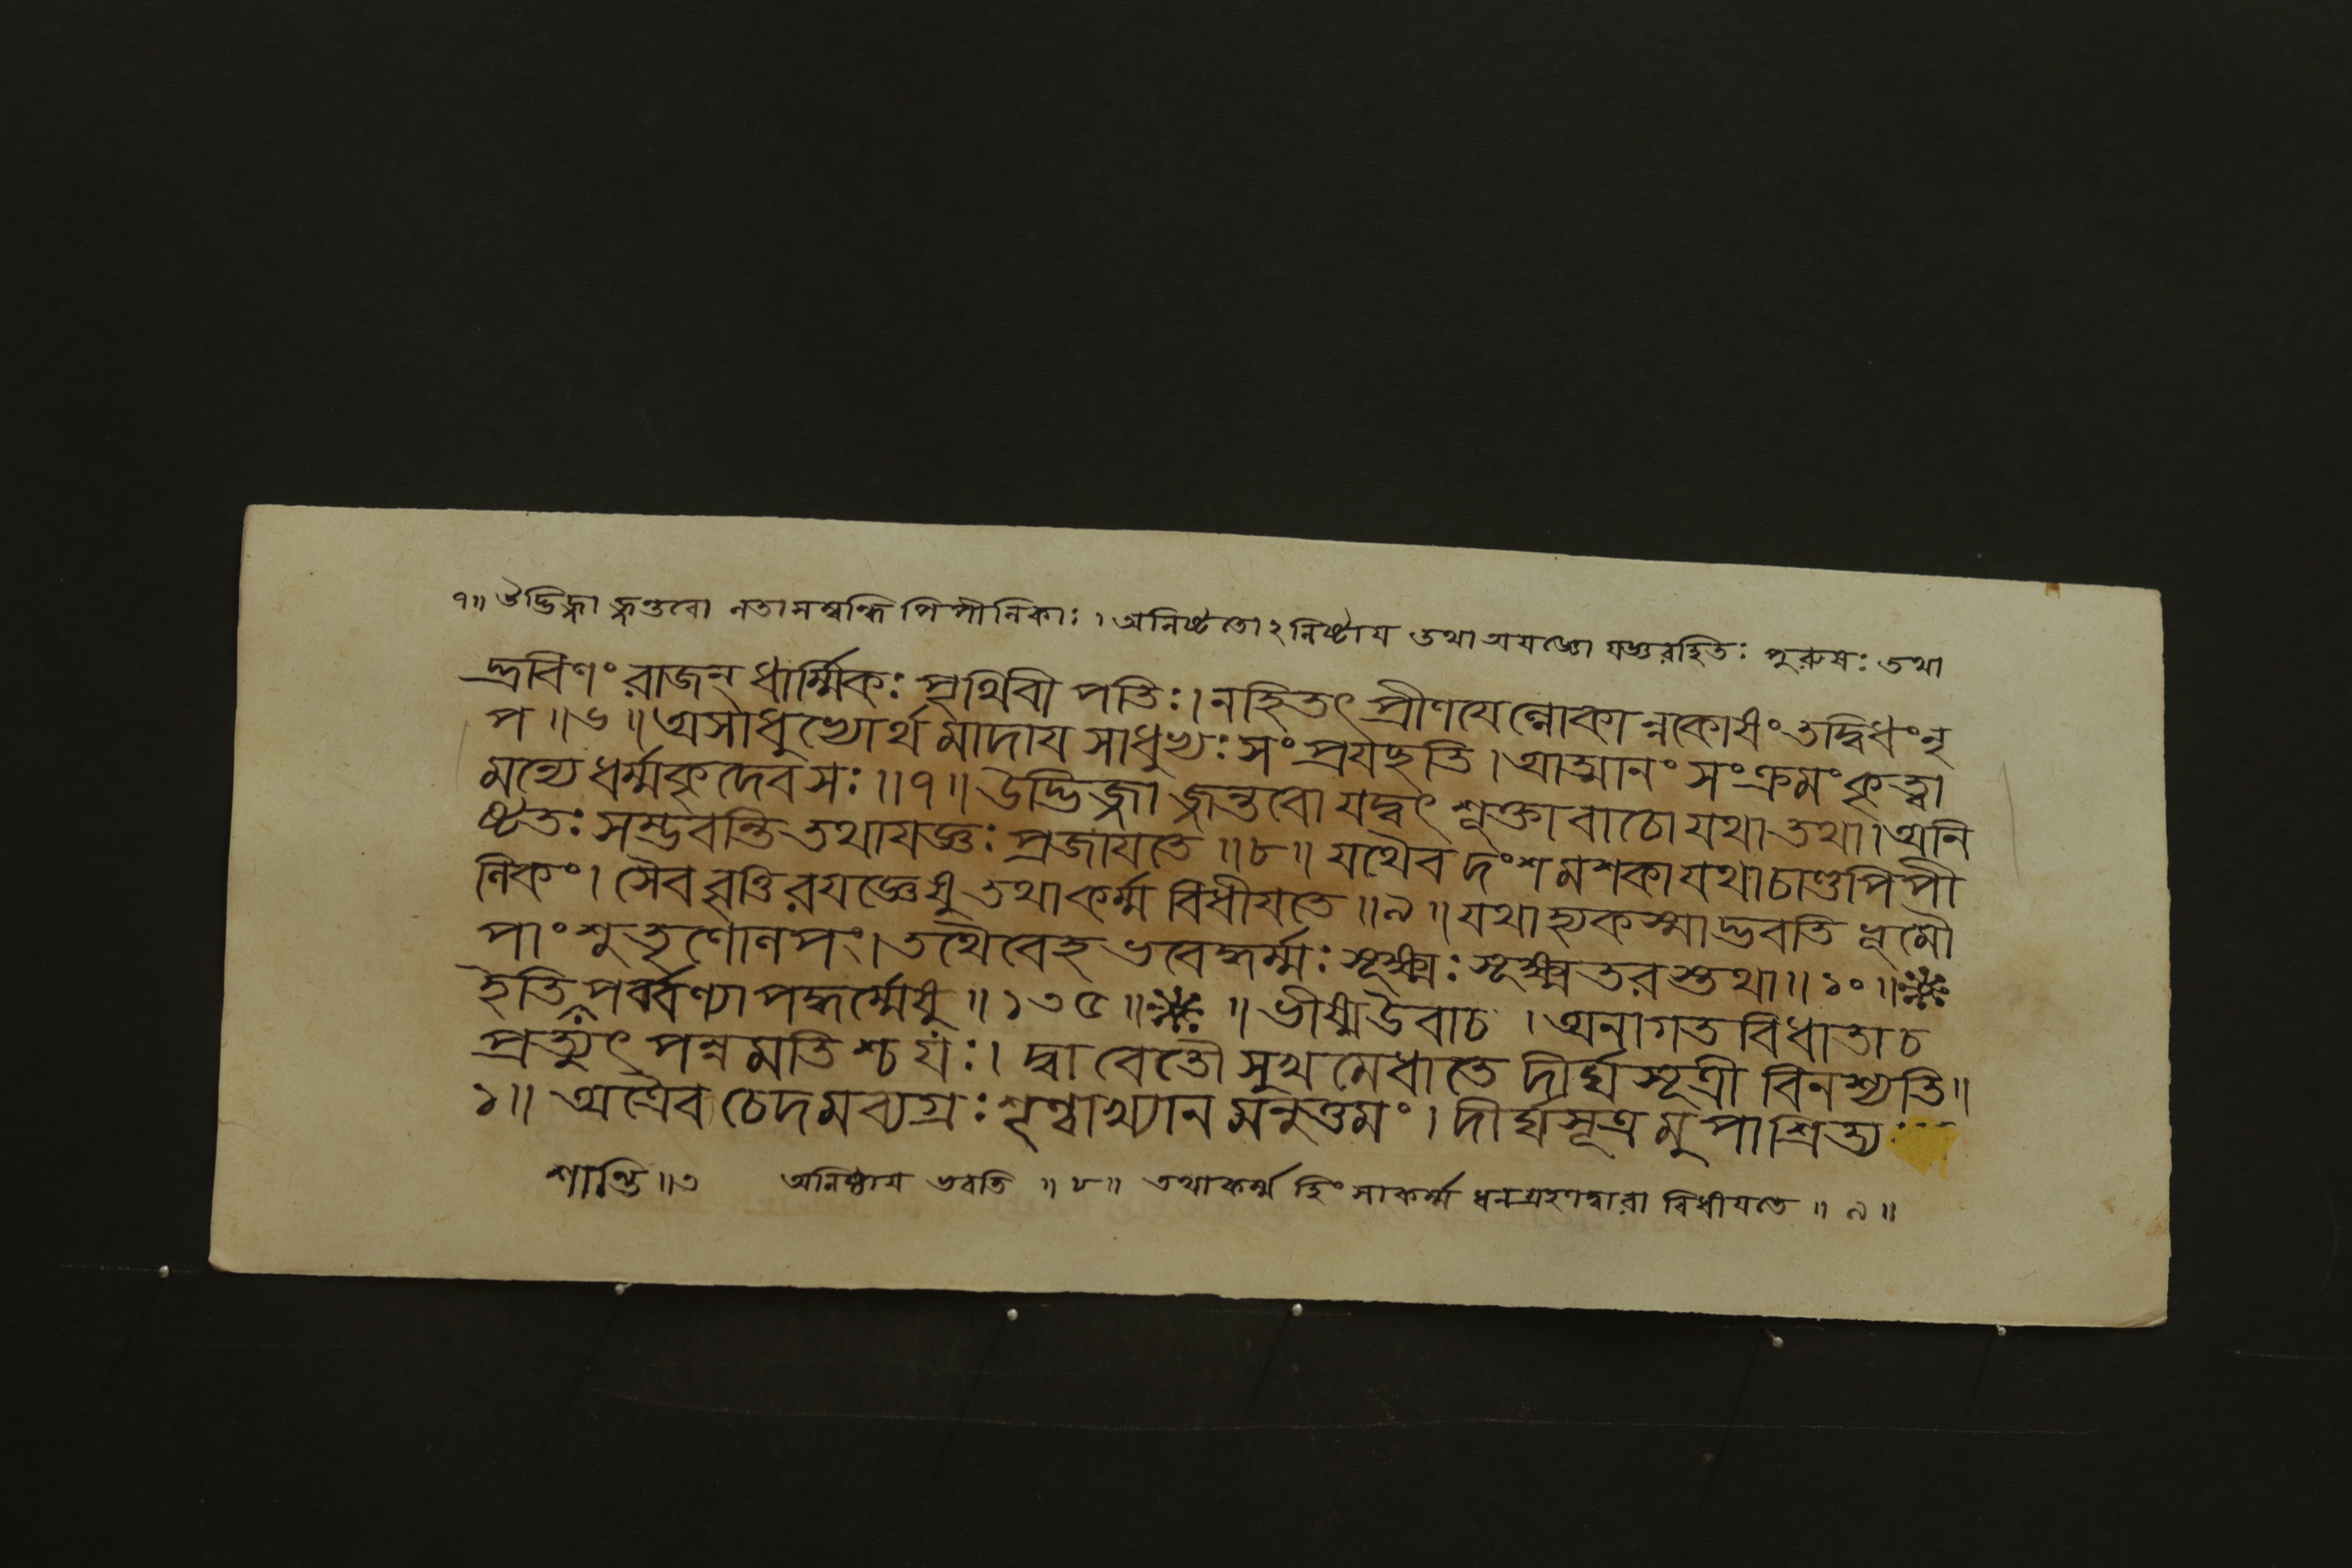 ৭॥ ঔদ্ভিজ্জা জন্তবো লতাসম্বন্ধি পিপীলিকাঃ । অনিষ্টতোঽনিষ্টায তথা অযজ্ঞো যজ্ঞরহিতঃ পুরুষঃ তথা
দ্রবিণং রাজন্ ধার্ম্মিকঃ পৃথিবী পতিঃ। নহিতৎ প্রীণযেল্লোকান্নকোষং তদ্বিধং নৃ
প॥৬॥ অসাধুভ্যোর্থ মাদায সাধুভ্যঃ সং প্রযচ্ছতি। আত্মানং সংক্রমং কৃত্বা
মন্যে ধর্ম্মকৃদেব সঃ॥৭॥ উদ্ভিজ্জা জন্তবো যদ্বৎ শুক্তা বাঠো যথা তথা। অনি
ষ্টতঃ সম্ভবন্তি তথাযজ্ঞঃ প্রজাযতে॥৮॥ যথৈব দংশ মশকা যথা চাণ্ডপিপী
লিকং। সৈব বৃত্তিরযজ্ঞেষু তথা কর্ম্ম বিধীযতে॥৯॥ যথাহ্যকস্মাদ্ভবতি ভূমৌ
পাংশুতৃণোলপং। তথৈবেহ ভবেদ্ধর্ম্মঃ সূক্ষ্মঃ সূক্ষ্মতরস্তথা॥১০॥
ইতি পর্ব্বণ্যাপদ্ধর্ম্মেষু॥১৩৫॥ ॥ ভীষ্ম উবাচ । অনাগত বিধাতা চ
প্রত্যুৎ পন্নমতিশ্চ যঃ। দ্বাবেতৌ সুখমেধাতে দীর্ঘসূত্রী বিনশ্যতি॥
১॥ অত্রৈব চেদমব্যগ্রঃ শৃণ্বাখ্যান মনুত্তমং। দীর্ঘসূত্র মুপাশ্রিত্য
শান্তি॥৩ অনিষ্টায ভবতি ॥৮॥ তথাকর্ম্ম হিংসাকর্ম্ম ধনগ্রহণদ্বারা বিধীযতে ॥৯॥